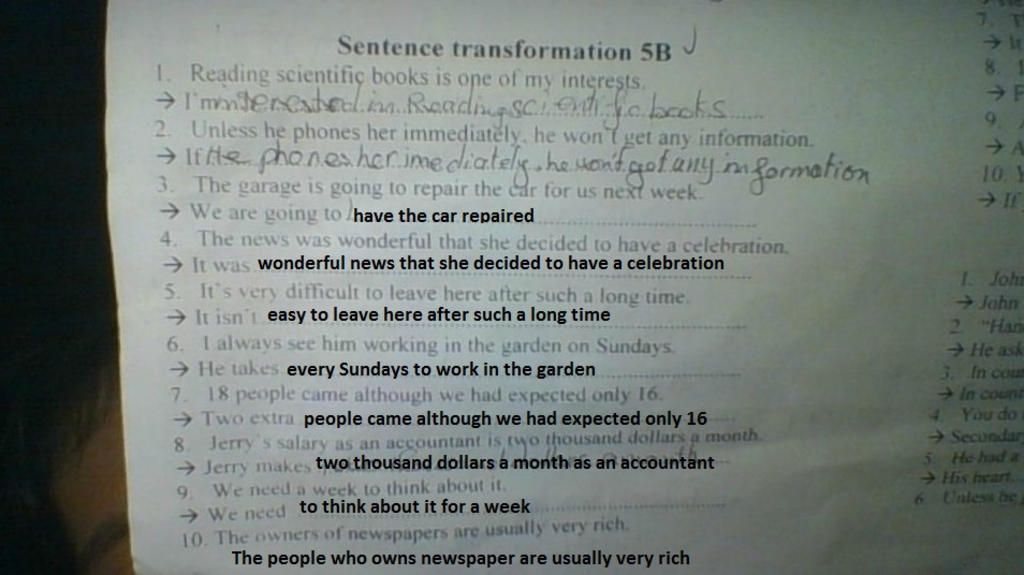 Sentence transformation 5B
1. Reading scientific books is one of my interests.
→ I'm interested in Reading scientific books
2. Unless he phones her immediately, he won't get any information.
→ If He phones her imediately, he won't get any information
3. The garage is going to repair the car for us next week.
→ We are going to have the car repaired
4. The news was wonderful that she decided to have a celebration.
→ It was wonderful news that she decided to have a celebration
5. It's very difficult to leave here after such a long time.
→ It isn't easy to leave here after such a long time
6. I always see him working in the garden on Sundays.
→ He takes every Sundays to work in the garden
7. 18 people came although we had expected only 16.
→ Two extra people came although we had expected only 16
8. Jerry's salary as an accountant is two thousand dollars a month.
→ Jerry makes two thousand dollars a month as an accountant
9. We need a week to think about it.
→ We need to think about it for a week
10. The owners of newspapers are usually very rich.
The people who owns newspaper are usually very rich
7.
→
8.
→
9.
→ A
10.
→ If
1. John
→ John
2. "Han
→ He ask
3. In cou
→ In count
4. You do
→ Secondar
5. He had a
→ His heart
6. Unless he